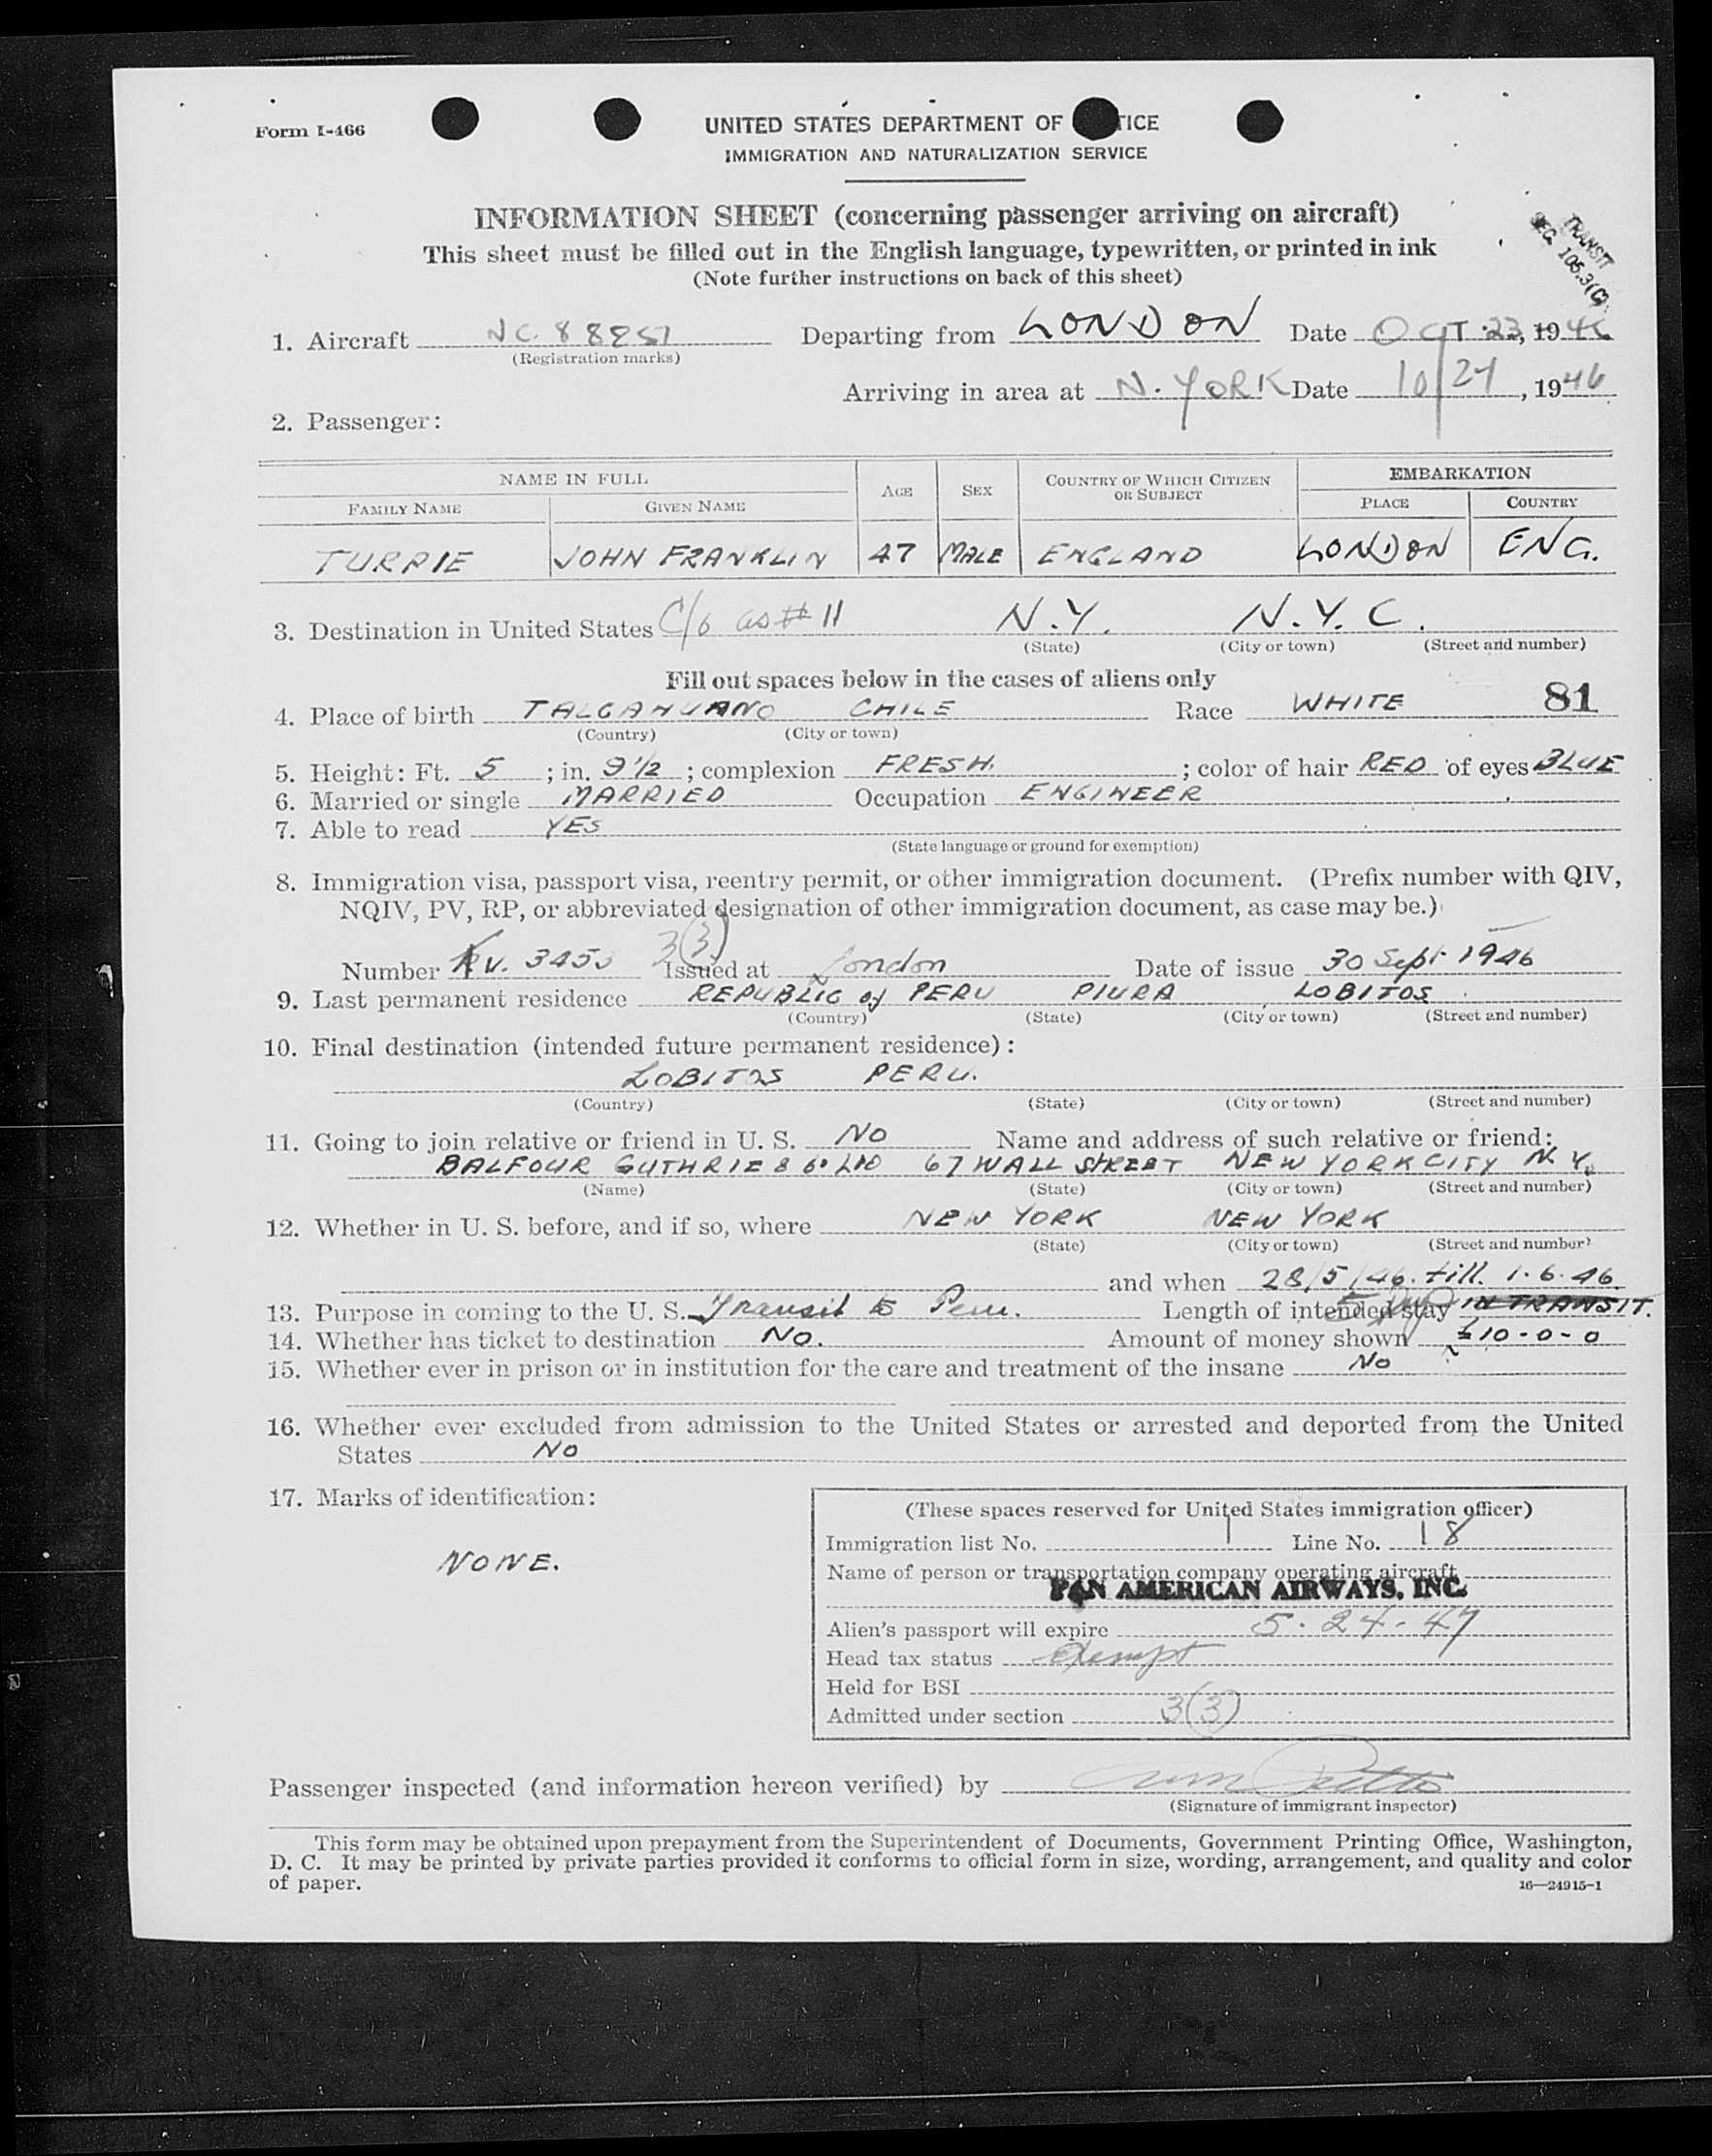 Form I-466
UNITED STATES DEPARTMENT OF TICE
IMMIGRATION AND NATURALIZATION SERVICE
INFORMATION SHEET (concerning passenger arriving on aircraft)
This sheet must be filled out in the English language, typewritten, or printed in ink
(Note further instructions on back of this sheet)
TRANSIT
SEC. 105.3(C)
1. Aircraft NC. 88857 Departing from LONDON Date OCT 23, 1946
(Registration marks)
Arriving in area at N. YORK Date 10/24, 1946
2. Passenger:
NAME IN FULL AGE SEX COUNTRY OF WHICH CITIZEN OR SUBJECT EMBARKATION
FAMILY NAME GIVEN NAME PLACE COUNTRY
TURPIE JOHN FRANKLIN 47 MALE ENGLAND LONDON ENG.
3. Destination in United States C/o as # 11 N.Y. N.Y.C.
(State) (City or town) (Street and number)
Fill out spaces below in the cases of aliens only
4. Place of birth TALCAHUANO CHILE Race WHITE 81
(Country) (City or town)
5. Height: Ft. 5 ; in. 9 1/2 ; complexion FRESH. ; color of hair RED of eyes BLUE
6. Married or single MARRIED Occupation ENGINEER
7. Able to read YES
(State language or ground for exemption)
8. Immigration visa, passport visa, reentry permit, or other immigration document. (Prefix number with QIV,
NQIV, PV, RP, or abbreviated designation of other immigration document, as case may be.)
3(3)
Number V. 3453 Issued at London Date of issue 30 Sept 1946
9. Last permanent residence REPUBLIC of PERU PIURA LOBITOS
(Country) (State) (City or town) (Street and number)
10. Final destination (intended future permanent residence):
LOBITOS PERU.
(Country) (State) (City or town) (Street and number)
11. Going to join relative or friend in U. S. NO Name and address of such relative or friend:
BALFOUR GUTHRIE & Co LTD 67 WALL STREET NEW YORK CITY N.Y.
(Name) (State) (City or town) (Street and number)
12. Whether in U. S. before, and if so, where NEW YORK NEW YORK
(State) (City or town) (Street and number)
and when 28/5/46. till. 1.6.46
13. Purpose in coming to the U. S. Transit to Peru. Length of intended stay 5 days IN TRANSIT.
14. Whether has ticket to destination NO. Amount of money shown £10-0-0
15. Whether ever in prison or in institution for the care and treatment of the insane NO
16. Whether ever excluded from admission to the United States or arrested and deported from the United
States NO
17. Marks of identification:
NONE.
(These spaces reserved for United States immigration officer)
Immigration list No. 1 Line No. 18
Name of person or transportation company operating aircraft
PAN AMERICAN AIRWAYS, INC.
Alien's passport will expire 5-24-47
Head tax status Exempt
Held for BSI
Admitted under section 3(3)
Passenger inspected (and information hereon verified) by
(Signature of immigrant inspector)
This form may be obtained upon prepayment from the Superintendent of Documents, Government Printing Office, Washington,
D. C. It may be printed by private parties provided it conforms to official form in size, wording, arrangement, and quality and color
of paper.
16—24915-1